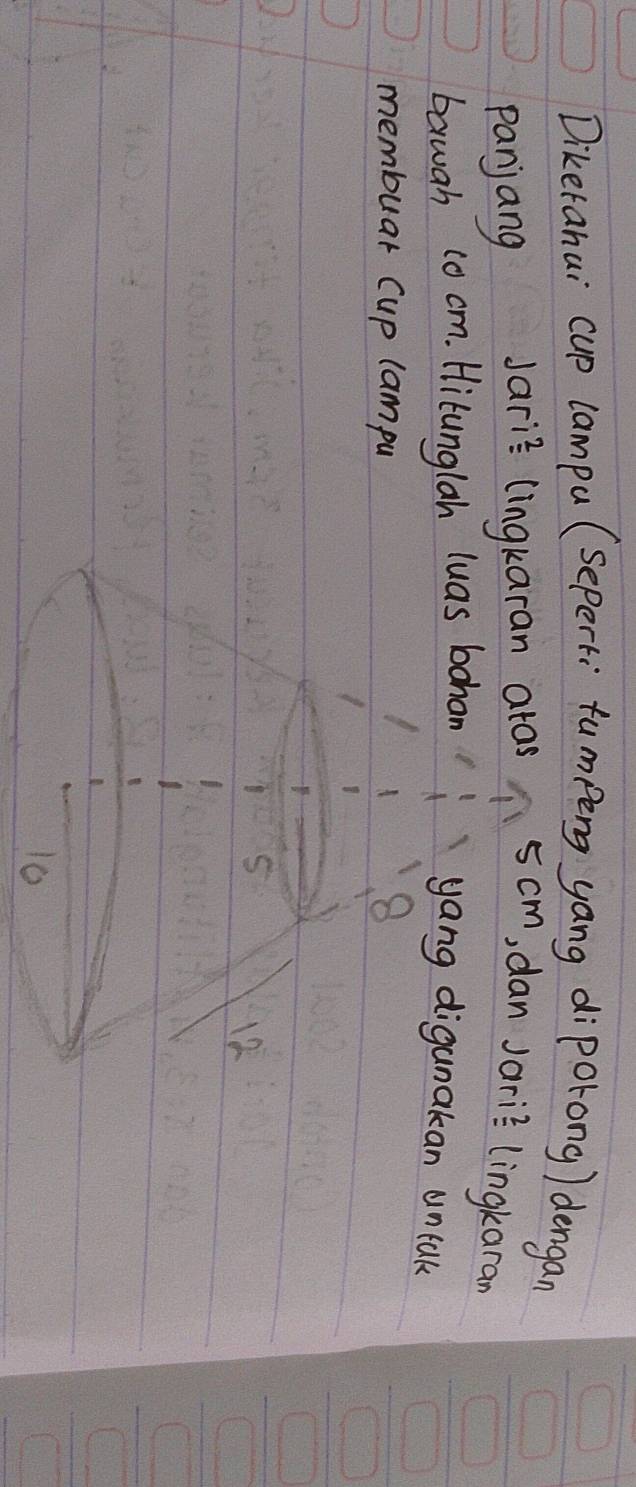 Diketahui cup lampu (seperti tumpeng yang dipotong) dengan
panjang jari²= lingkaran atas 5 cm, dan jari²= lingkaran
bawah 10 cm. Hitunglah luas bahan yang digunakan untuk
membuat cup lampu
8
5
12
10